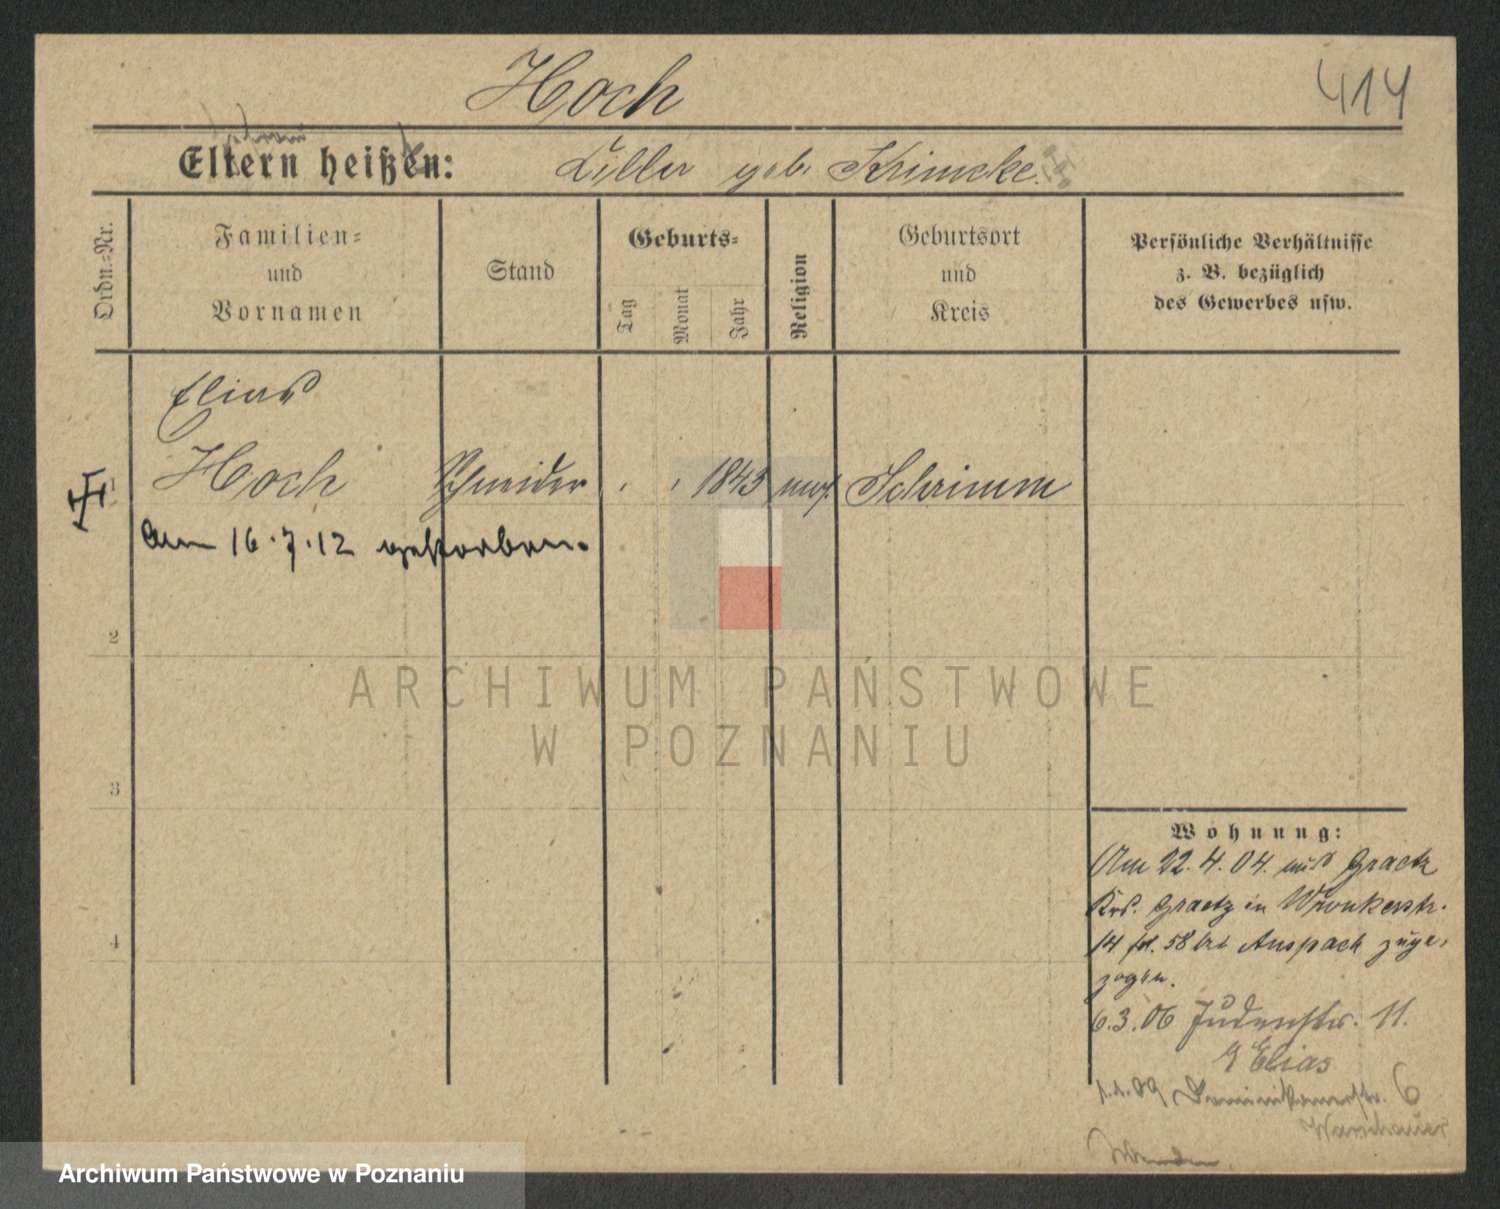 Hoch
414
Eltern heißen:
Ziller geb. Krimcke.
Ordn.-Nr.
Familien-
und
Vornamen
Stand
Geburts-
Tag
Monat
Jahr
Religion
Geburtsort
und
Kreis
Persönliche Verhältnisse
z. B. bezüglich
des Gewerbes usw.
Elias
1 Hoch Schneider 1843 mos. Schrimm
Am 16.7.12 gestorben.
2
3
4
ARCHIWUM PAŃSTWOWE
W POZNANIU
Wohnung:
Am 22.4.04. aus Graetz
Krs. Graetz in Wronkerstr.
14 58 bei Anspach zuge-
zogen.
6.3.06 Judenstr. 11.
Elias
1.1.09 Dominikanerstr. 6
Warschauer
Archiwum Państwowe w Poznaniu